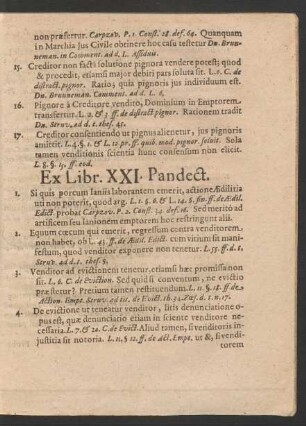 non præsertur. Carpzov. P. 1. Const. 28. def. 64. Quanquam
in Marchia Jus Civile obtinere hoc casu testetur Dn. Brun-
neman. in Comment. ad d. L. Assiduis.
15. Creditor non facta solutione pignora vendere potest; quod
& procedit, etiamsi major debiti pars soluta sit. L. 6. C. de
distract. pignor. Ratio; quia pignoris jus individuum est.
Dn. Brunneman. Comment. ad d. L. 6.
16. Pignore à Creditore vendito, Dominium in Emptorem
transfertur. L. 2. & 3. ff. de distract pignor. Rationem tradit
Dn. Struv. ad d. t. thes. 45.
17. Creditor consentiendo ut pignus alienetur, jus pignoris
amittit. L. 4. §. 1. & L. 12. pr. ff. quib. mod. pignor. solvit. Sola
tamen venditionis scientia hunc consensum non elicit.
L. 8. §. 15. ff. eod.
Ex Libr. XXI. Pandect.
1. Si quis porcum laniis laborantem emerit, actione Ædilitia
uti non poterit, quod arg. L. 1. §. 6. & L. 14. §. fin. ff. de Ædil.
Edict. probat Carpzov. P. 2. Const. 34. def. 16. Sed meritò ad
artificem seu lanionem emptorem hoc restringunt alii.
2. Equum cœcum qui emerit, regressum contra venditorem
non habet, ob L. 43. ff. de Ædil. Edict. cum vitium sit mani-
festum, quod venditor exponere non tenetur. L. 75. ff. d. t.
Struv. ad d. t. thes. 5.
3. Venditor ad evictionem tenetur, etiamsi hæc promissa non
sit. L. 6. C. de Eviction. Sed quid si conventum, ne evictio
præstetur? Precium tamen restituendum. L. 11. §. 18. ff. de
Action. Empt. Struv. ad tit. de Evict. th. 34. Zas. d. t. n. 17.
4. De evictione ut teneatur venditor, litis denunciatione o-
pus est, quæ denunciatio etiam in sciente venditore ne-
cessaria. L. 7. & 20. C. de Evict. Aliud tamen, si venditoris in-
justitia sit notoria. L. 11. §. 12. ff. de Act. Empt. ut &, si vendi-
torem